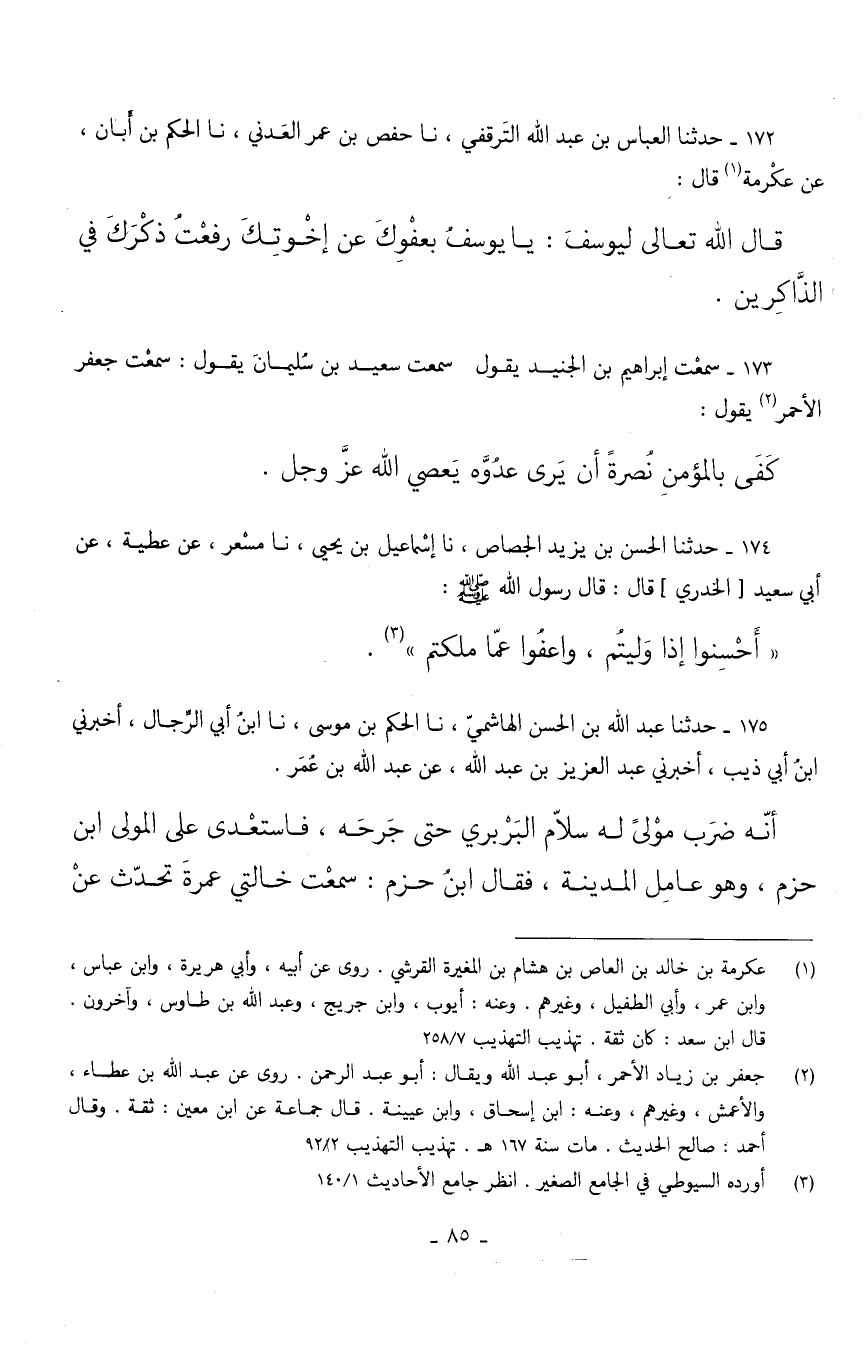 ١٧٢ ـ حدثنا العباس بن عبد الله التَرقفي ، نـا حفص بن عمر العَدني ، نـا الحكم بن أَبـان ،
عن عكْرمة(١) قال :
قـال الله تعـالى ليوسفَ : يـا يوسفُ بعفْوِكَ عن إخْـوتِـكَ رفعْتُ ذكْرَكَ في
الذَّاكِرين .
١٧٣ ـ سمعْت إبراهيم بن الجنيـد يقـول سمعت سعيـد بن سُليمـانَ يقـول : سمعْت جعفر
الأحمر(٢) يقول :
كَفَى بالمؤمنِ نُصرةً أن يَرى عدُوَّه يَعصي الله عزَّ وجل .
١٧٤ ـ حدثنا الحسن بن يزيد الجصاص ، نا إسْماعيل بن يحيى ، نـا مسْعر ، عن عطيـة ، عن
أبي سعيد [ الخدري ] قال : قال رسول الله ﷺ :
« أَحْسِنوا إذا وَليتُم ، واعفُوا عمّا ملكتم »(٣) .
١٧٥ ـ حدثنا عبد الله بن الحسن الهاشميّ ، نـا الحكم بن موسى ، نـا ابنُ أبي الرِّجـال ، أخبرني
ابنُ أبي ذيب ، أخبرني عبد العزيز بن عبد الله ، عن عبد الله بن عُمَر .
أنّـه ضرَب موْلىً لـه سلاّم البَرْبري حتى جَرحَـه ، فـاستعْـدى على المولى ابن
حزم ، وهو عـامِل المـدينـة ، فقـال ابنُ حـزم : سمعْت خـالتي عمرةَ تحـدّث عنْ
(١) عكرمة بن خالد بن العاص بن هشام بن المغيرة القرشي . روى عن أبيه ، وأبي هريرة ، وابن عباس ،
وابن عمر ، وأبي الطفيل ، وغيرهم . وعنه : أيوب ، وابن جريج ، وعبد الله بن طـاوس ، وآخرون .
قال ابن سعد : كان ثقة . تهذيب التهذيب ٢٥٨/٧
(٢) جعفر بن زيـاد الأحمر ، أبـو عبـد الله ويقـال : أبـو عبـد الرحمن . روى عن عبـد الله بن عطـاء ،
والأعمش ، وغيرهم ، وعنـه : ابن إسحـاق ، وابن عيينـة . قـال جمـاعـة عن ابن معين : ثقـة . وقـال
أحمد : صالح الحديث . مات سنة ١٦٧ هـ . تهذيب التهذيب ٩٢/٢
(٣) أورده السيوطي في الجامع الصغير . انظر جامع الأحاديث ١٤٠/١
ـ ٨٥ ـ